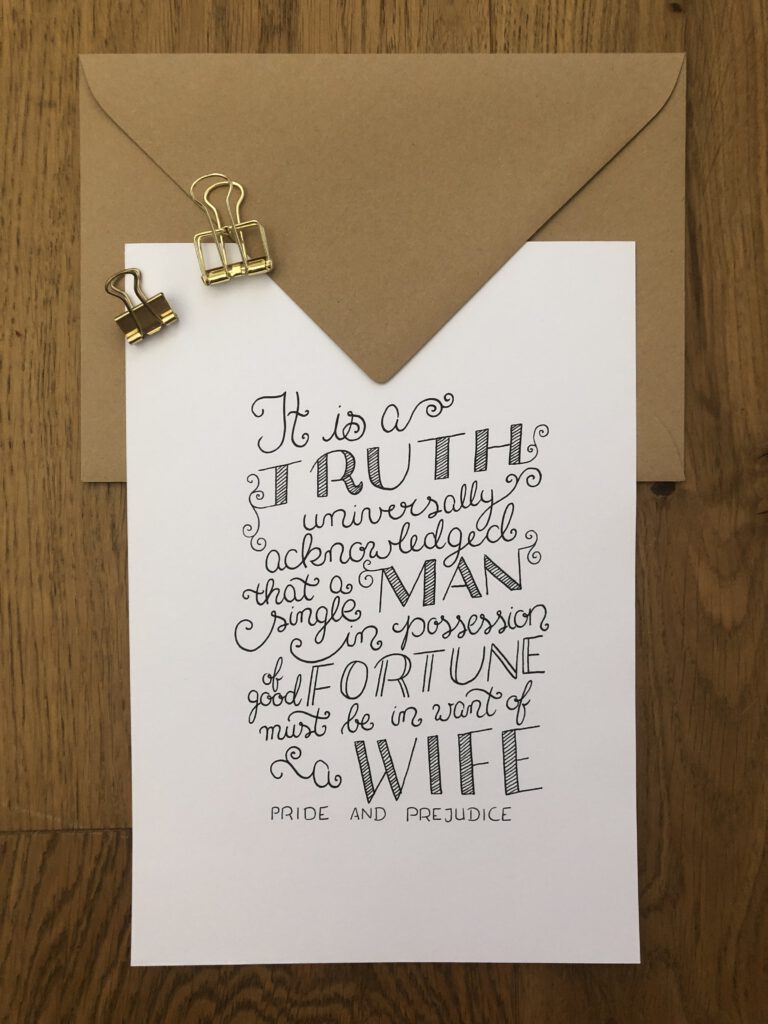 It is a
TRUTH
universally
acknowledged
that a
single MAN
in possession
of
good FORTUNE
must be in want of
a WIFE
PRIDE AND PREJUDICE